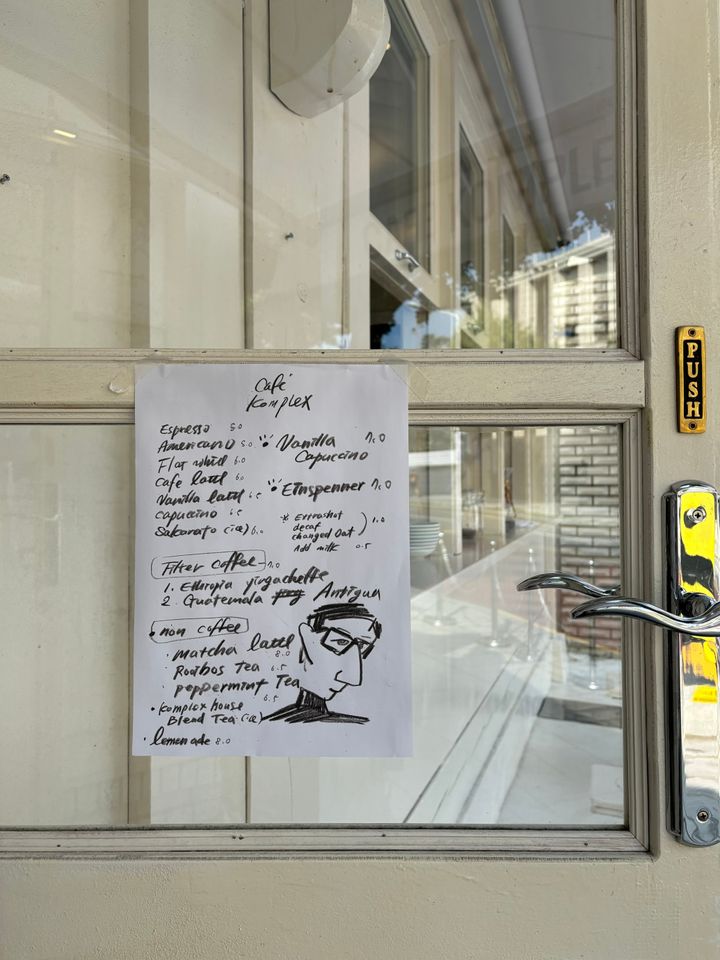 Café
Komplex
Espresso 5.0
Americano 5.0
Flat whitE 6.0
Cafe lattE 6.0
Vanilla lattE 6.5
Capuccino 6.5
Sakerato (ice) 6.0
Vanilla 7.0
Capuccino
Einspenner 7.0
* Extrashot
decaf
changed Oat
1.0
Add milk 0.5
Filter coffee 7.0
1. Ethiopia yirgacheffe
2. Guatemala Antigua
non coffee
· matcha lattE 8.0
· Rooibos Tea 6.5
· peppermint Tea 6.5
• Komplex house
Blend Tea (ice)
• lemonade 8.0
PUSH